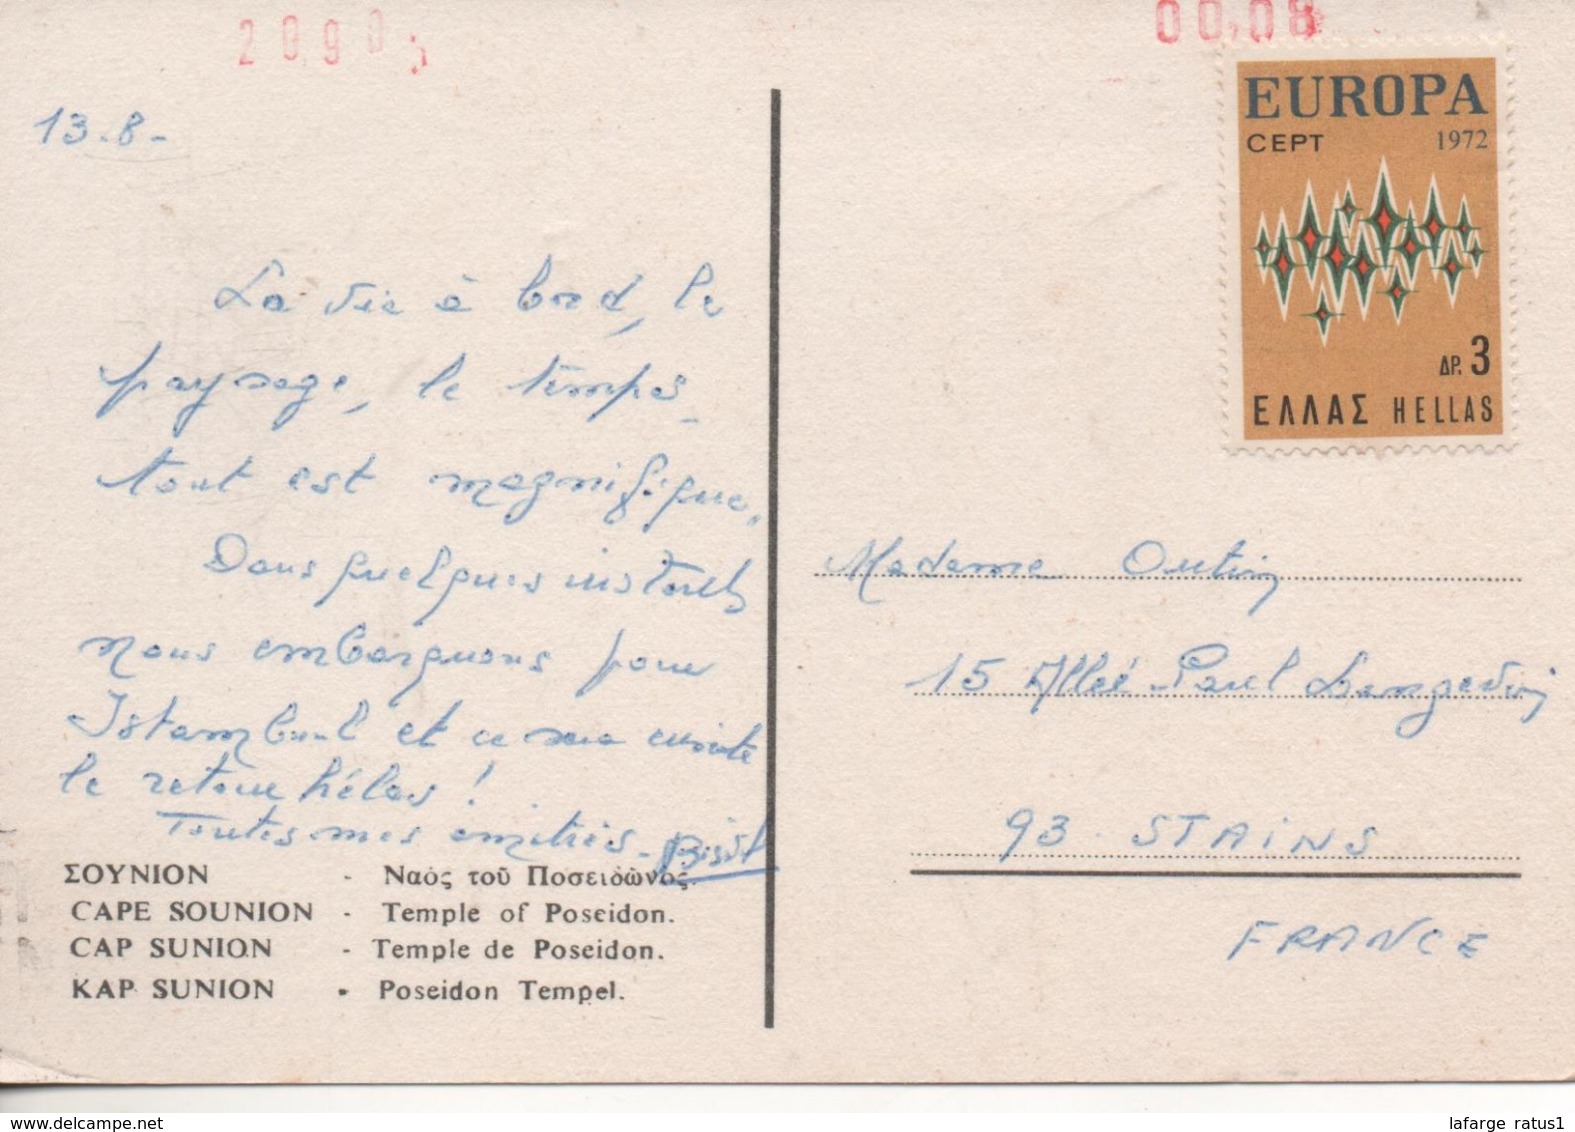 20905
00,08
EUROPA
CEPT 1972
ΔΡ. 3
ΕΛΛΑΣ HELLAS
13-8-
La vie à bord, le
paysage, le temps,
tout est magnifique.
Dans quelques instants
nous embarquons pour
Istambul et ensuite
le retour hélas !
Toutes mes amitiés -
Madame
15 Allée Paul Langevin
93 - STAINS
FRANCE
ΣΟΥΝΙΟΝ - Ναὸς τοῦ Ποσειδῶνος.
CAPE SOUNION - Temple of Poseidon.
CAP SUNION - Temple de Poseidon.
KAP SUNION - Poseidon Tempel.
www.delcampe.net
lafarge ratus1